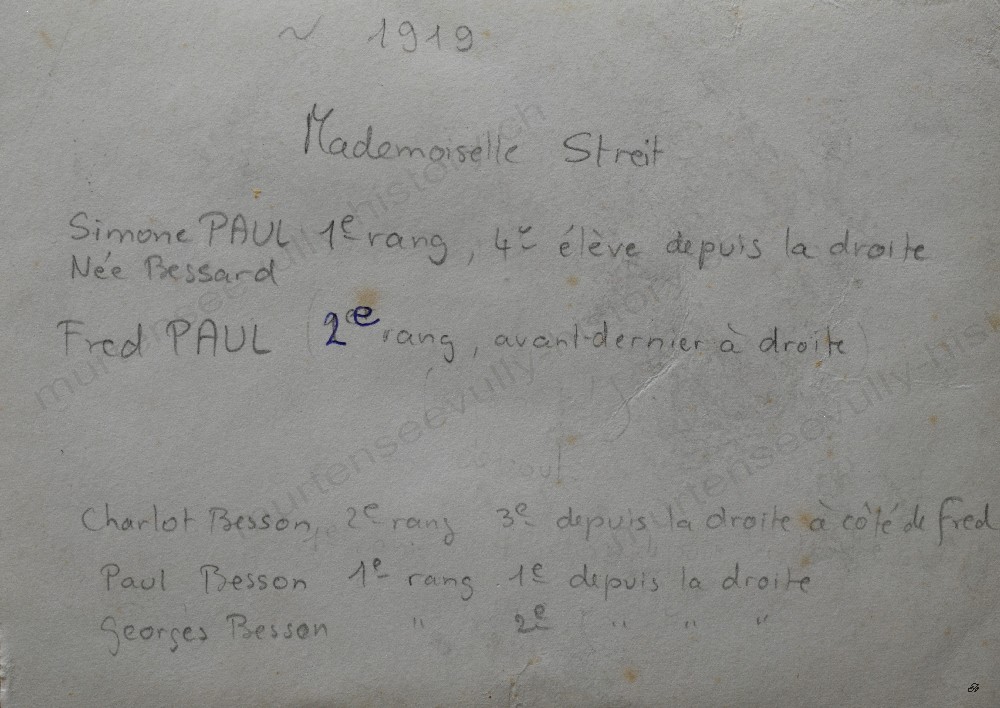 ~ 1919
Mademoiselle Streit
Simone PAUL 1e rang, 4e élève depuis la droite
Née Bessard
Fred PAUL (2e rang, avant-dernier à droite)
Charlot Besson, 2e rang 3e depuis la droite à côté de fred
Paul Besson 1e rang 1e depuis la droite
Georges Besson " 2e " " "